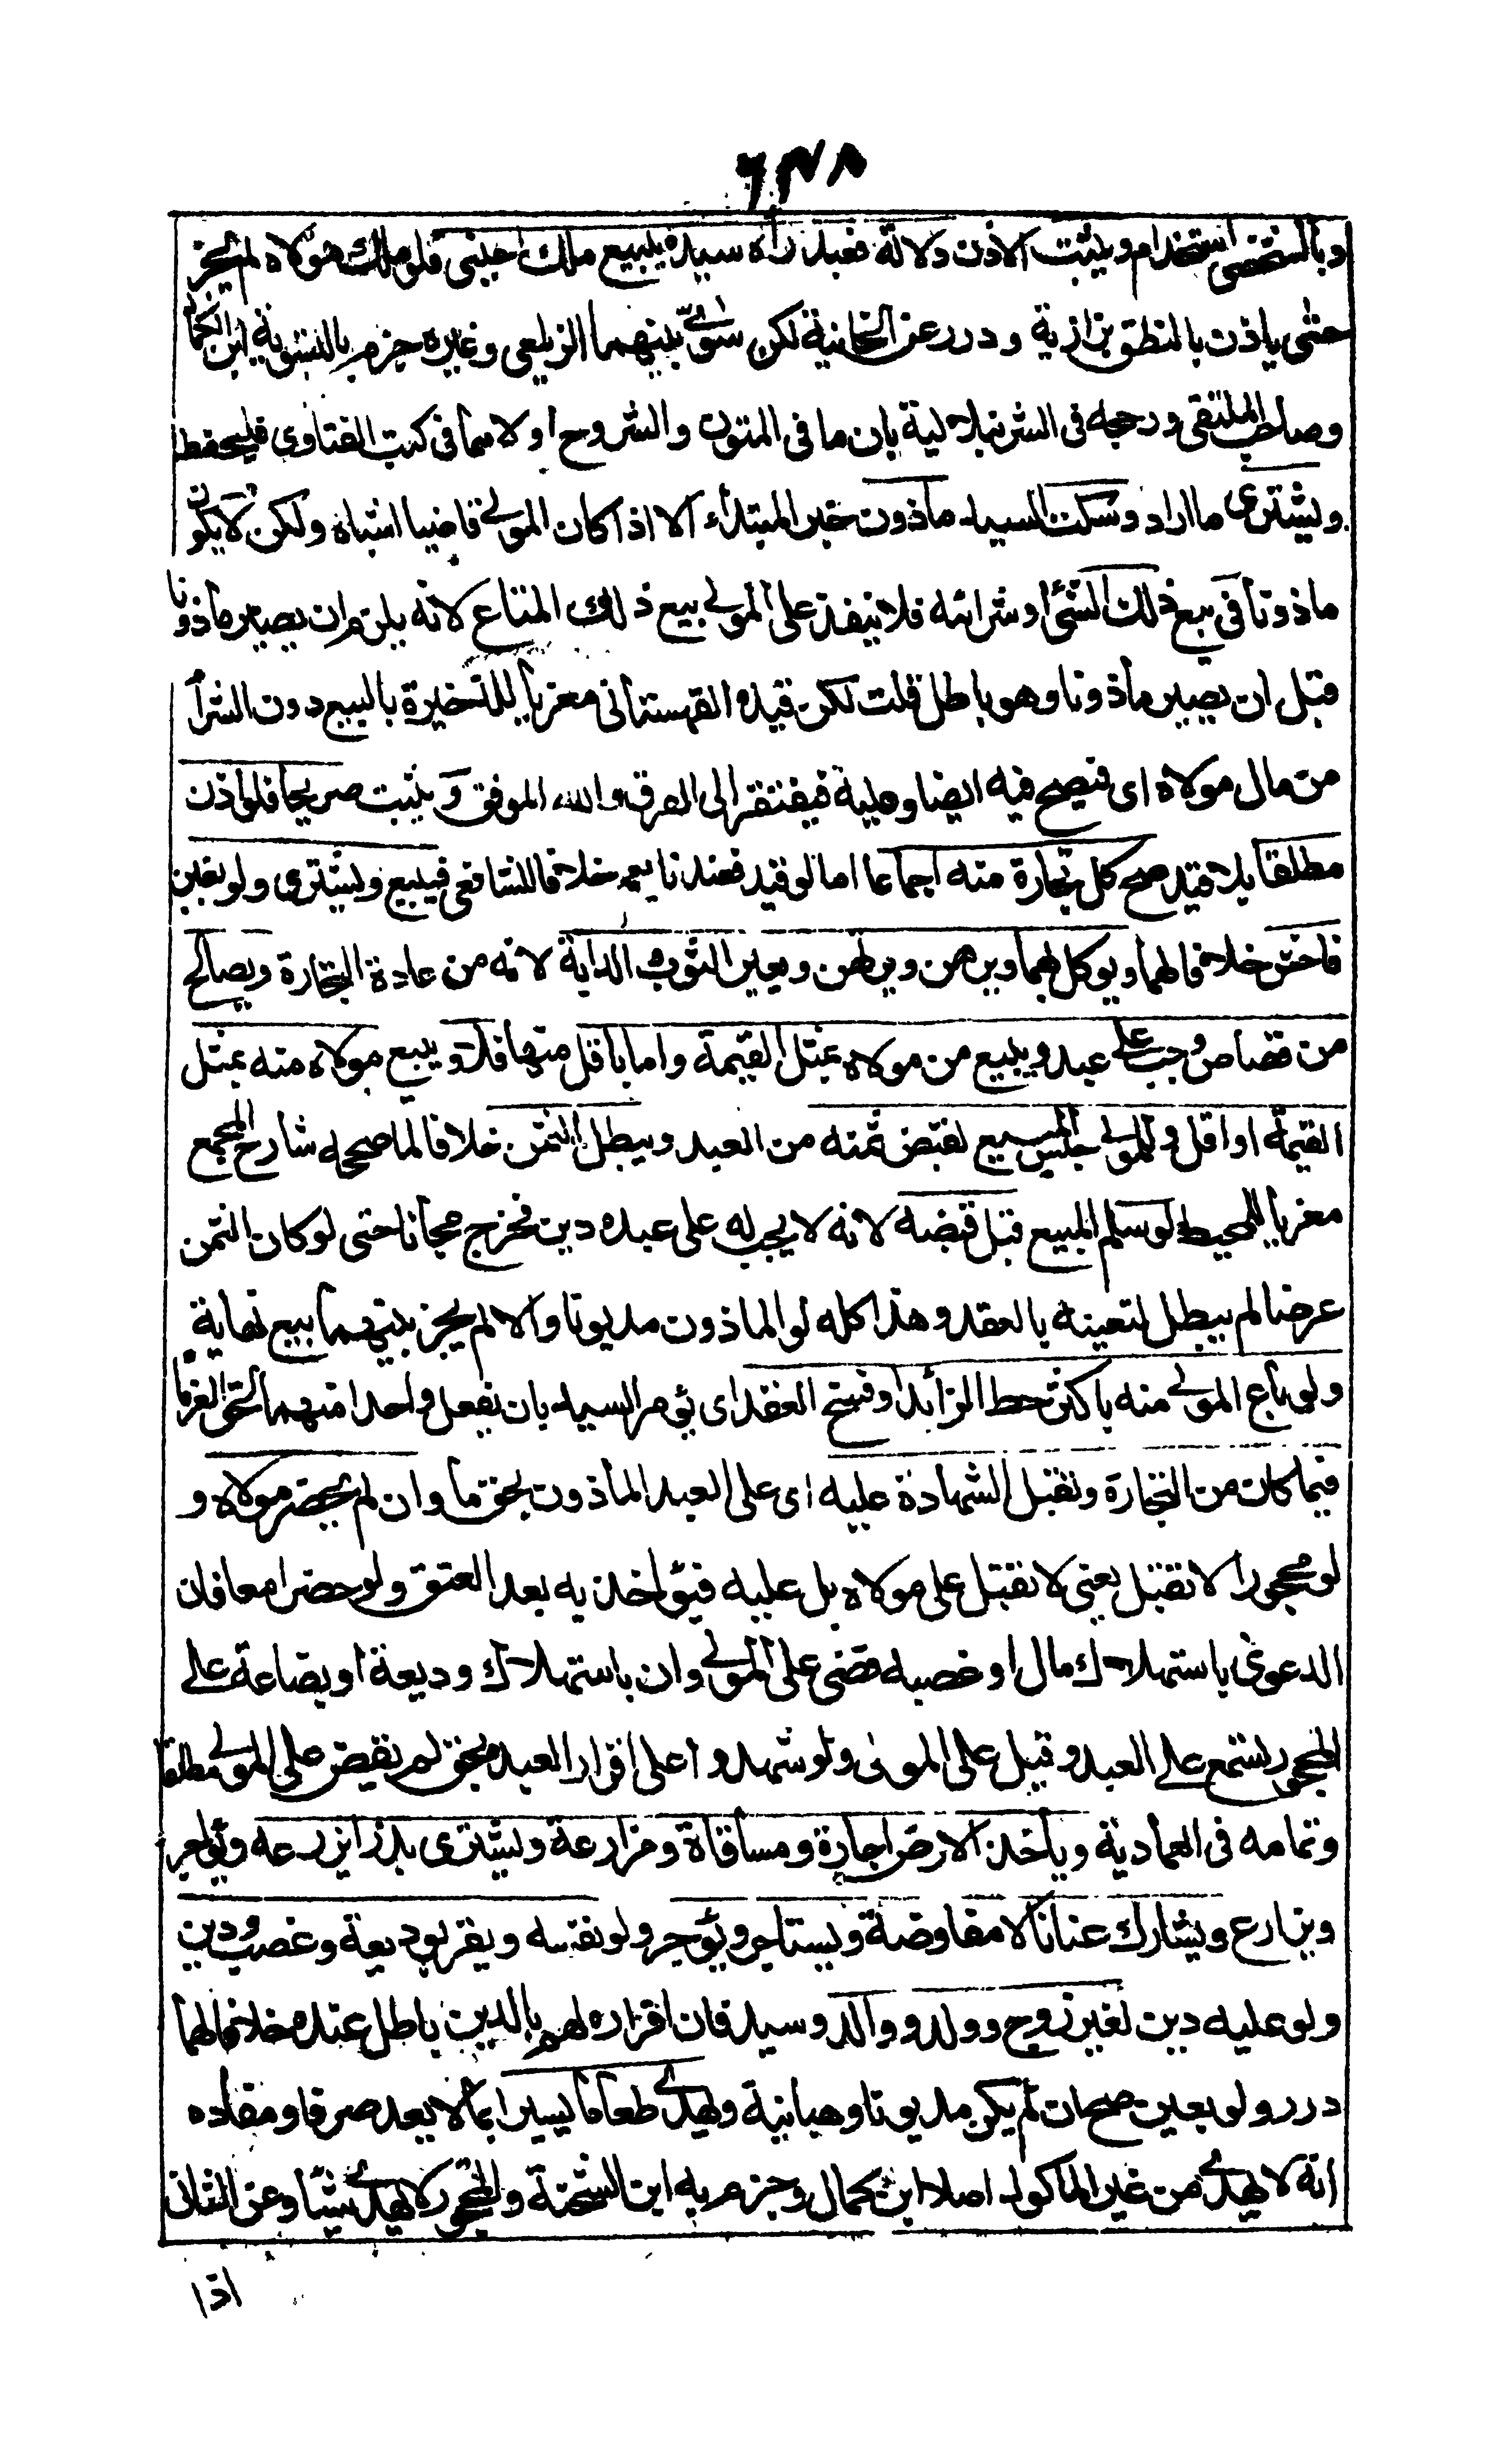 ٦٣٨
وبالشخصى استخدام ويثبت الاذن دلالة فعبد رأه سيده يبيع ملك اجنبى فلو ملك مولاه لم يجز
حتى ياذن بالنطق بزازية ودرر عن الخانية لكن سوّى بينهما الزيلعى وغيره جزم بالتسوية ابن الكمال
وصاحب الملتقى ورجحه فى الشرنبلالية بان ما فى المتون والشروح اولا مما فى كتب الفتاوى فليحفظ
ويشترى ما اراد وسكت السيد ماذون خبر المبتداء الا اذا كان المولى قاضيا اشباه ولكن لا يكون
ماذونا فى بيع ذلك الشئ او شرائه فلا ينفذ على المولى بيع ذلك المتاع لانه يلزم ان يصير ماذونا
قبل ان يصير مأذونا وهو باطل قلت لكن قيده القهستانى معزيا للذخيرة بالبيع دون الشرأ
من مال مولاه اى فيصح فيه ايضا وعليه فيفتقر الى الفرق والله الموفق ويثبت صريحا فلو اذن
مطلقا بلا قيد صح كل تجارة منه اجماعا اما لو قيد فعندنا يعم خلافا للشافعى فيبيع ويشترى ولو بغبن
فاحش خلافا لهما ويوكل بهما ويرهن ويرتهن ويعير الثوب والدابة لانه من عادة التجارة ويصالح
من قصاص وجب على عبده ويبيع من مولاه بمثل القيمة واما باقل منها فلا ويبيع مولاه منه بمثل
القيمة او اقل وللمولى حبس المبيع لقبض ثمنه من العبد ويبطل الثمن خلافا لما صححه شارح المجمع
معزيا للمحيط لو سلم المبيع قبل قبضه لانه لا يجب له على عبده دين فخرج مجانا حتى لو كان الثمن
عرضا لم يبطل لتعينه بالعقد وهذا كله لو الماذون مديونا والا لم يجز بينهما بيع نهاية
ولو باع المولى منه باكثر حط الزائد او فسخ العقد اى يؤمر السيد بان يفعل واحدا منهما لحق الغرما
فيما كان من التجارة وتقبل الشهادة عليه اى على العبد المأذون بحق ما وان لم يحضر مولاه و
لو محجورا لا تقبل يعنى لا تقبل على مولاه بل عليه فيؤاخذ به بعد العتق ولو حضرا معا فان
الدعوى باستهلاك مال او غصبه قضى على المولى وان باستهلاك وديعة او بضاعة على
المحجور تسمع على العبد وقيل على المولى ولو شهدوا على اقرار العبد بحق لم يقض على المولى مطلقا
وتمامه فى العمادية ويأخذ الارض اجارة ومساقاة ومزارعة ويشترى بذرا يزرعه ويؤاجر
ويزارع ويشارك عنانا لا مفاوضة ويستاجر ويؤجر ولو نفسه ويقر بوديعة وغصب ودين
ولو عليه دين لغير زوج وولد ووالد وسيد فان اقراره لهم بالدين باطل عنده خلافا لهما
درر ولو بعين صح ان لم يكن مديونا وهبانية ويهدى طعاما يسيرا بما لا يعد صرفا ومفاده
انه لا يهدى من غير الماكول اصلا ابن كمال وجزم به ابن الشحنة والمحجور لا يهدى شيئا وعن الثانى
اذا